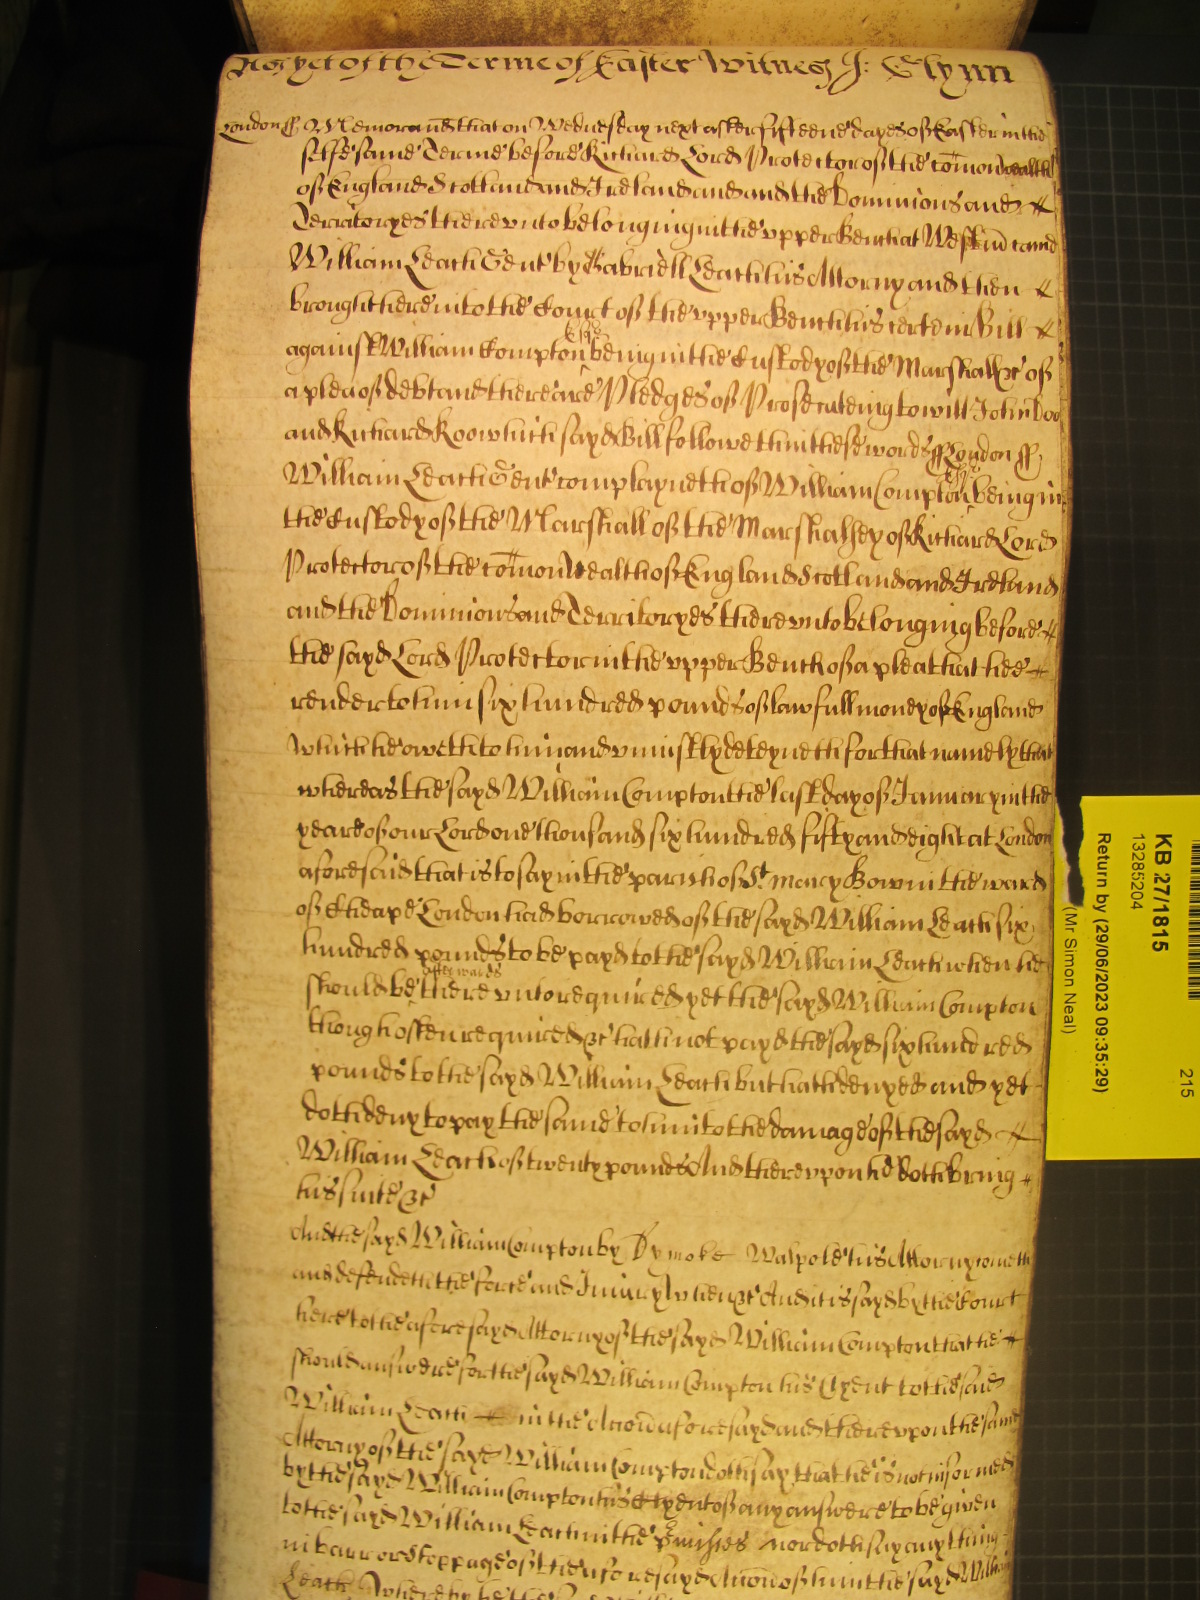 As yet of the Terme of Easter Witnes J: Glynn
London ss Memorand that on Wednesday next after fifteene dayes of Easter in the
selfe same Terme before Richard Lord Protector of the comon wealth
of England Scotland and Ireland and and the Dominions and
Territoryes thereunto belonging in the upper Bench at Westm came
William Leach Gent by Gabriell Leach his Attorny and then
brought here into the Court of the upper Bench his certein Bill
against William Compton Esqr being in the Custody of the Marshall &c of
a plea of debt and there are Pledges of Prosecuteing to witt John Doo
and Richard Roo which sayd Bill followeth in these words ss London ss
William Leach Gent complayneth of William Compton Esqr being in
the Custody of the Marshall of the Marshalsey of Richard Lord
Protector of the comon Wealth of England Scotland and Ireland
and the Dominions and Territoryes thereunto belonging before
the sayd Lord Protector in the upper Bench of a plea that hee
render to him six hundred pounds of lawfull money of England
which he oweth to him and uniustly deteyneth for that namely that
whereas the sayd William Compton the last day of January in the
yeare of our Lord one thousand six hundred fifty and eight at London
aforesaid that is to say in the parish of St Mary Bow in the ward
of Cheape London had borrowed of the sayd William Leach six
hundred pounds to be payd to the sayd William Leach when he
should be afterwards thereunto required yet the sayd William Compton
though often required &c hath not payd the sayd six hundred
pounds to the sayd William Leach but hath denyed and yet
doth deny to pay the same to him to the damage of the sayd
William Leach of twenty pounds And thereupon he doth bring
his suite &c
And the sayd William Compton by Dymoke Walpole his Attorny cometh
and defendeth the force and Iniury when &c And it is sayd by the Court
here to the aforesayd Attorny of the sayd William Compton that he
should answere for the sayd William Compton his Clyent to the said
William Leach in the Accon aforesayd and thereupon the same
Attorny of the sayd William Compton doth say that he is not informed
by the sayd William Compton his Clyent of any answere to be given
to the sayd William Leach in the premisses nor doth say any thing
in barr or stoppage of the aforesayd Accon of him the sayd William
Leach whereby he the
KB 27/1815
13285204
Return by (29/06/2023 09:35:29)
(Mr Simon Neal)
215